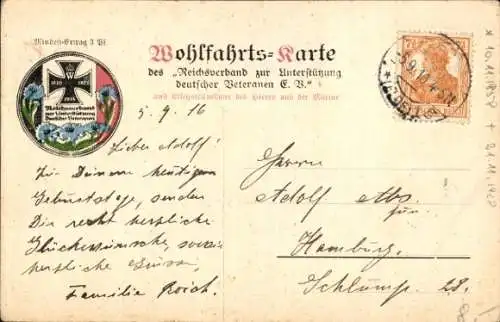 Minden-Ertrag 3 Pf
Wohlfahrts=Karte
des „Reichsverband zur Unterstützung
deutscher Veteranen E. V."
und Kriegsteilnehmer des Heeres und der Marine
W
1914
Reichsverband
zur Unterstützung
Deutscher Veteranen
5. 9. 16
Lieber Adolf!
Zu Deinem heutigen
Geburtstag, senden
Dir recht herzliche
Glückwünsche, sowie
herzliche Grüsse,
Familie Reich.
Herrn
Adolf Abs
jun.
Hamburg.
Schlump. 28.
7½